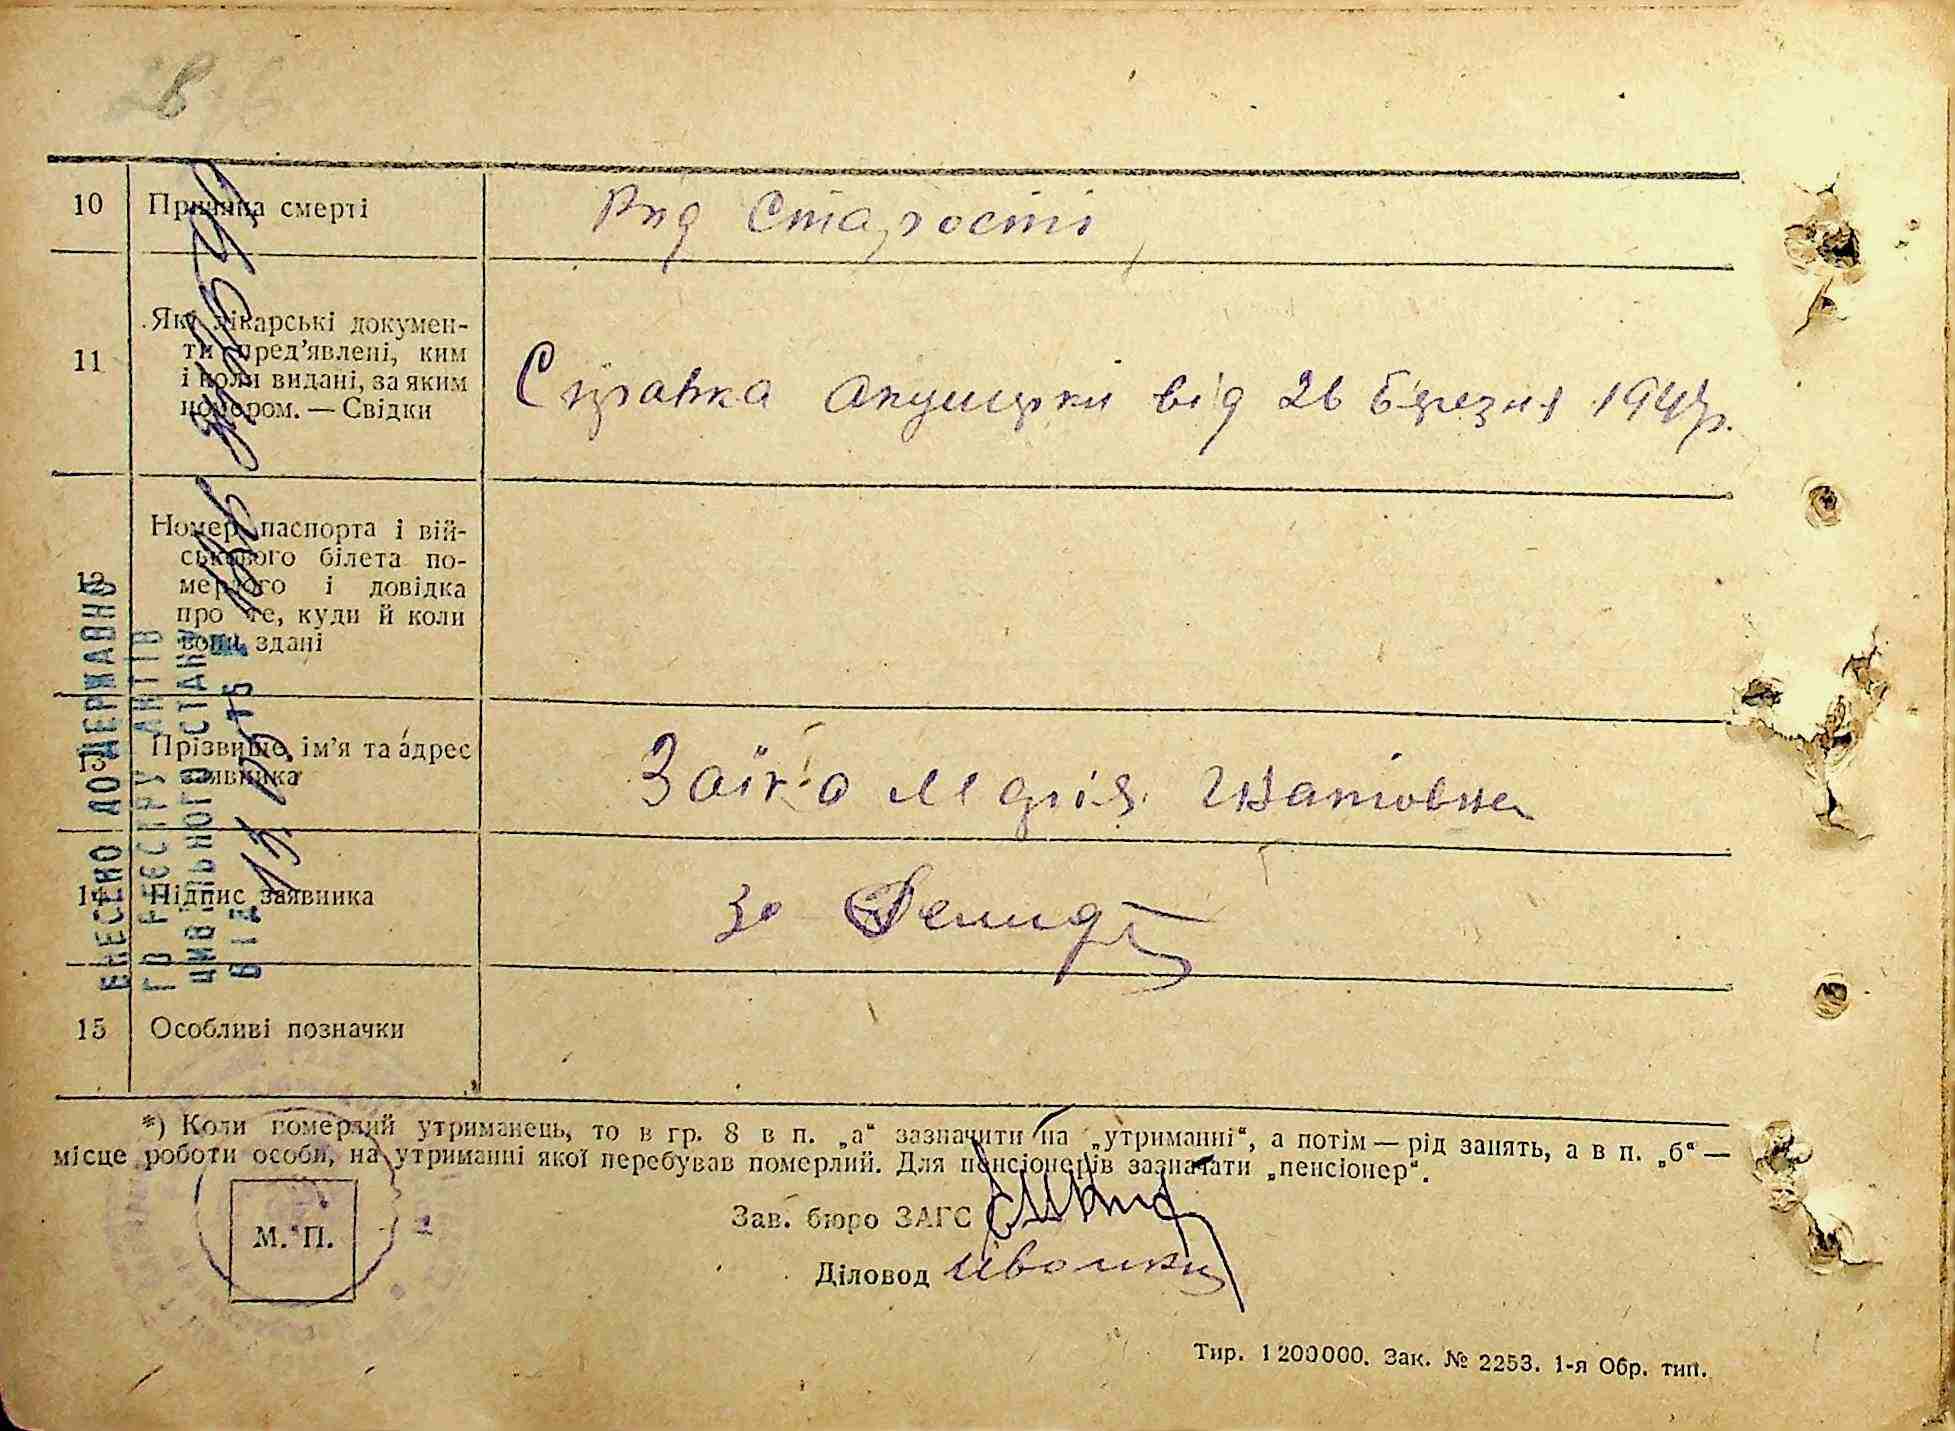 10 Причина смерті Вид Старости
11 Які лікарські документи пред’явлені, ким
і коли видані, за яким
номером. — Свідки
Справка акушерки від 26 березня 194
12 Номер паспорта і вій-
ськового білета по-
мерлого і довідка
про те, куди й коли
вони здані
13 Прізвище, ім’я та адрес
заявника
Заїка Марія Гнатовна
14 Підпис заявника за
15 Особливі позначки
*) Коли померлий утриманець, то в гр. 8 в п. „а“ зазначити на „утриманні“, а потім — рід занять, а в п. „б“ —
місце роботи особи, на утриманні якої перебував померлий. Для пенсіонерів зазначати „пенсіонер“.
Зав. бюро ЗАГС
М. П.
Діловод
Тир. 1200000. Зак. № 2253. 1-я Обр. тип.
ВНЕСЕНО ДО ДЕРЖАВНО
ГО РЕЄСТРУ АКТІВ
ЦИВІЛЬНОГО СТАНУ
ВІД